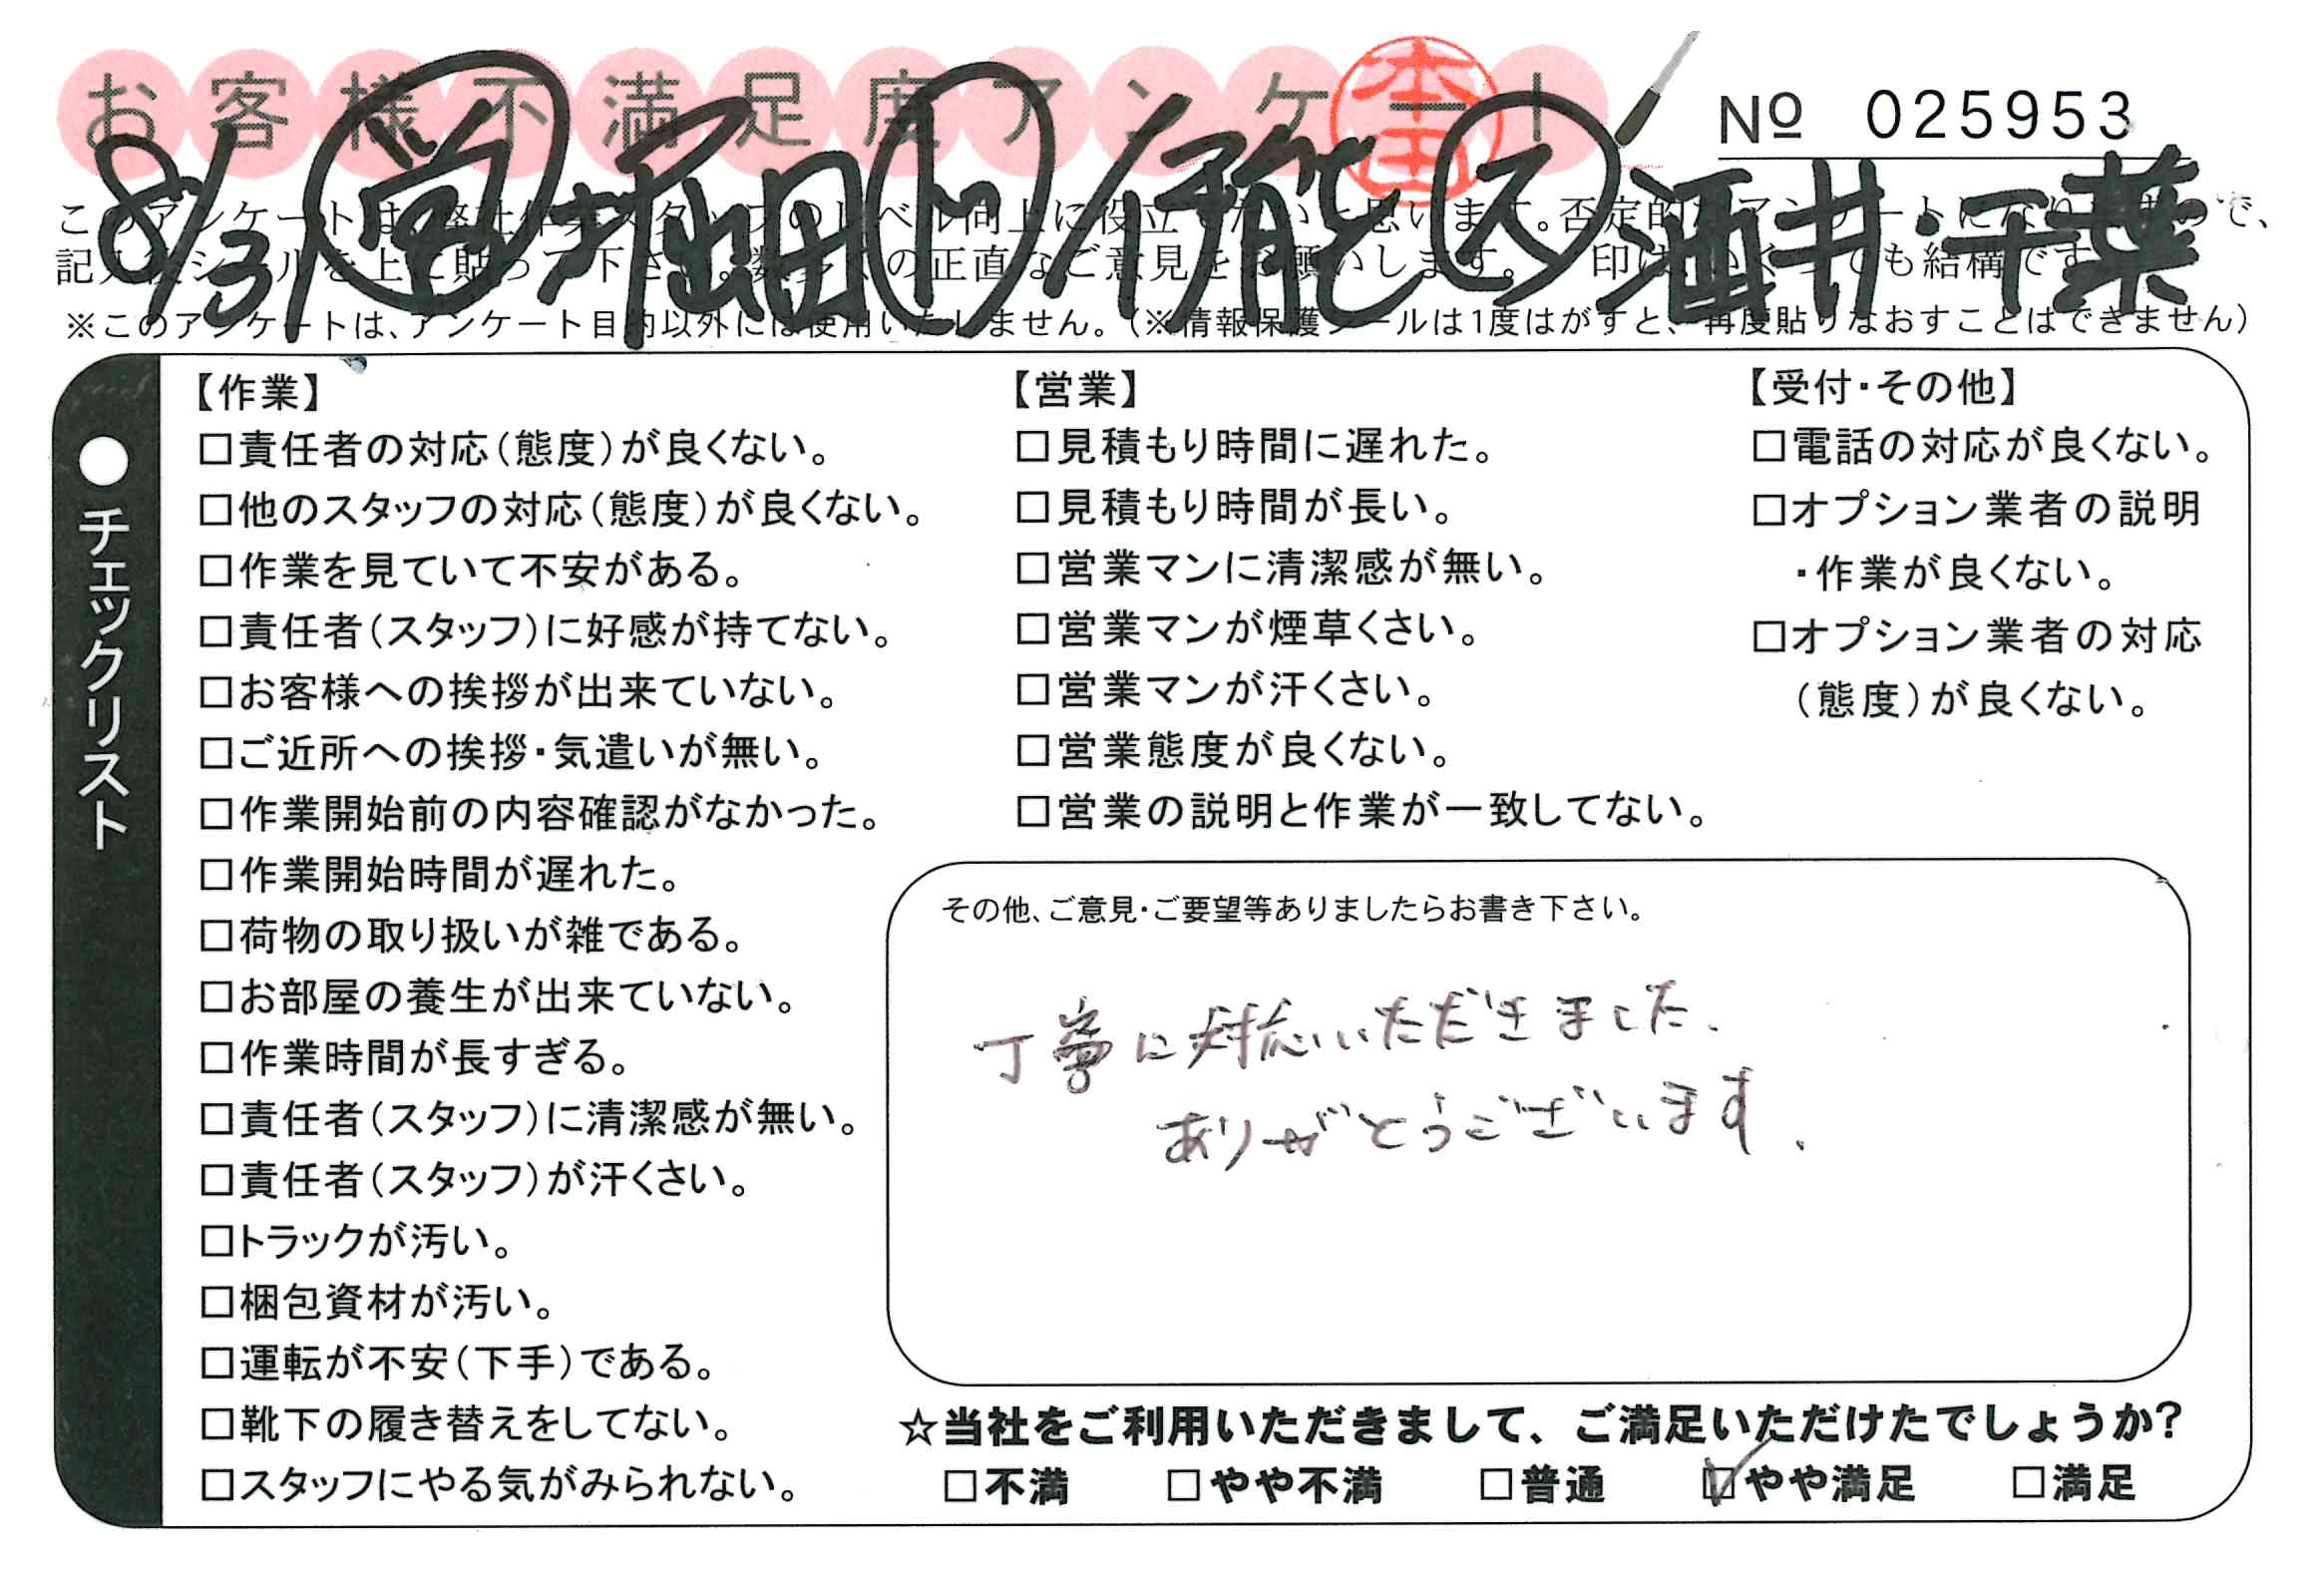 お客様不満足度アンケート
本田
№ 025953
8/31 営 堀田 リ 伊能 ス 酒井・千葉
このアンケートは、弊社作業スタッフのレベル向上に役立 たい 思います。否定的 アンケートになり で、
記入後シールを上に貼って下さい。数多くの正直なご意見をお願いします。 印は、いくつでも結構です
※このアンケートは、アンケート目的以外には使用いたしません。(※情報保護シールは1度はがすと、再度貼りなおすことはできません)
●チェックリスト
【作業】
□責任者の対応(態度)が良くない。
□他のスタッフの対応(態度)が良くない。
□作業を見ていて不安がある。
□責任者(スタッフ)に好感が持てない。
□お客様への挨拶が出来ていない。
□ご近所への挨拶・気遣いが無い。
□作業開始前の内容確認がなかった。
□作業開始時間が遅れた。
□荷物の取り扱いが雑である。
□お部屋の養生が出来ていない。
□作業時間が長すぎる。
□責任者(スタッフ)に清潔感が無い。
□責任者(スタッフ)が汗くさい。
□トラックが汚い。
□梱包資材が汚い。
□運転が不安(下手)である。
□靴下の履き替えをしてない。
□スタッフにやる気がみられない。
【営業】
□見積もり時間に遅れた。
□見積もり時間が長い。
□営業マンに清潔感が無い。
□営業マンが煙草くさい。
□営業マンが汗くさい。
□営業態度が良くない。
□営業の説明と作業が一致してない。
【受付・その他】
□電話の対応が良くない。
□オプション業者の説明
・作業が良くない。
□オプション業者の対応
(態度)が良くない。
その他、ご意見・ご要望等ありましたらお書き下さい。
丁寧に対応いただきました.
ありがとうございます.
☆当社をご利用いただきまして、ご満足いただけたでしょうか?
□不満 □やや不満 □普通 ☑やや満足 □満足